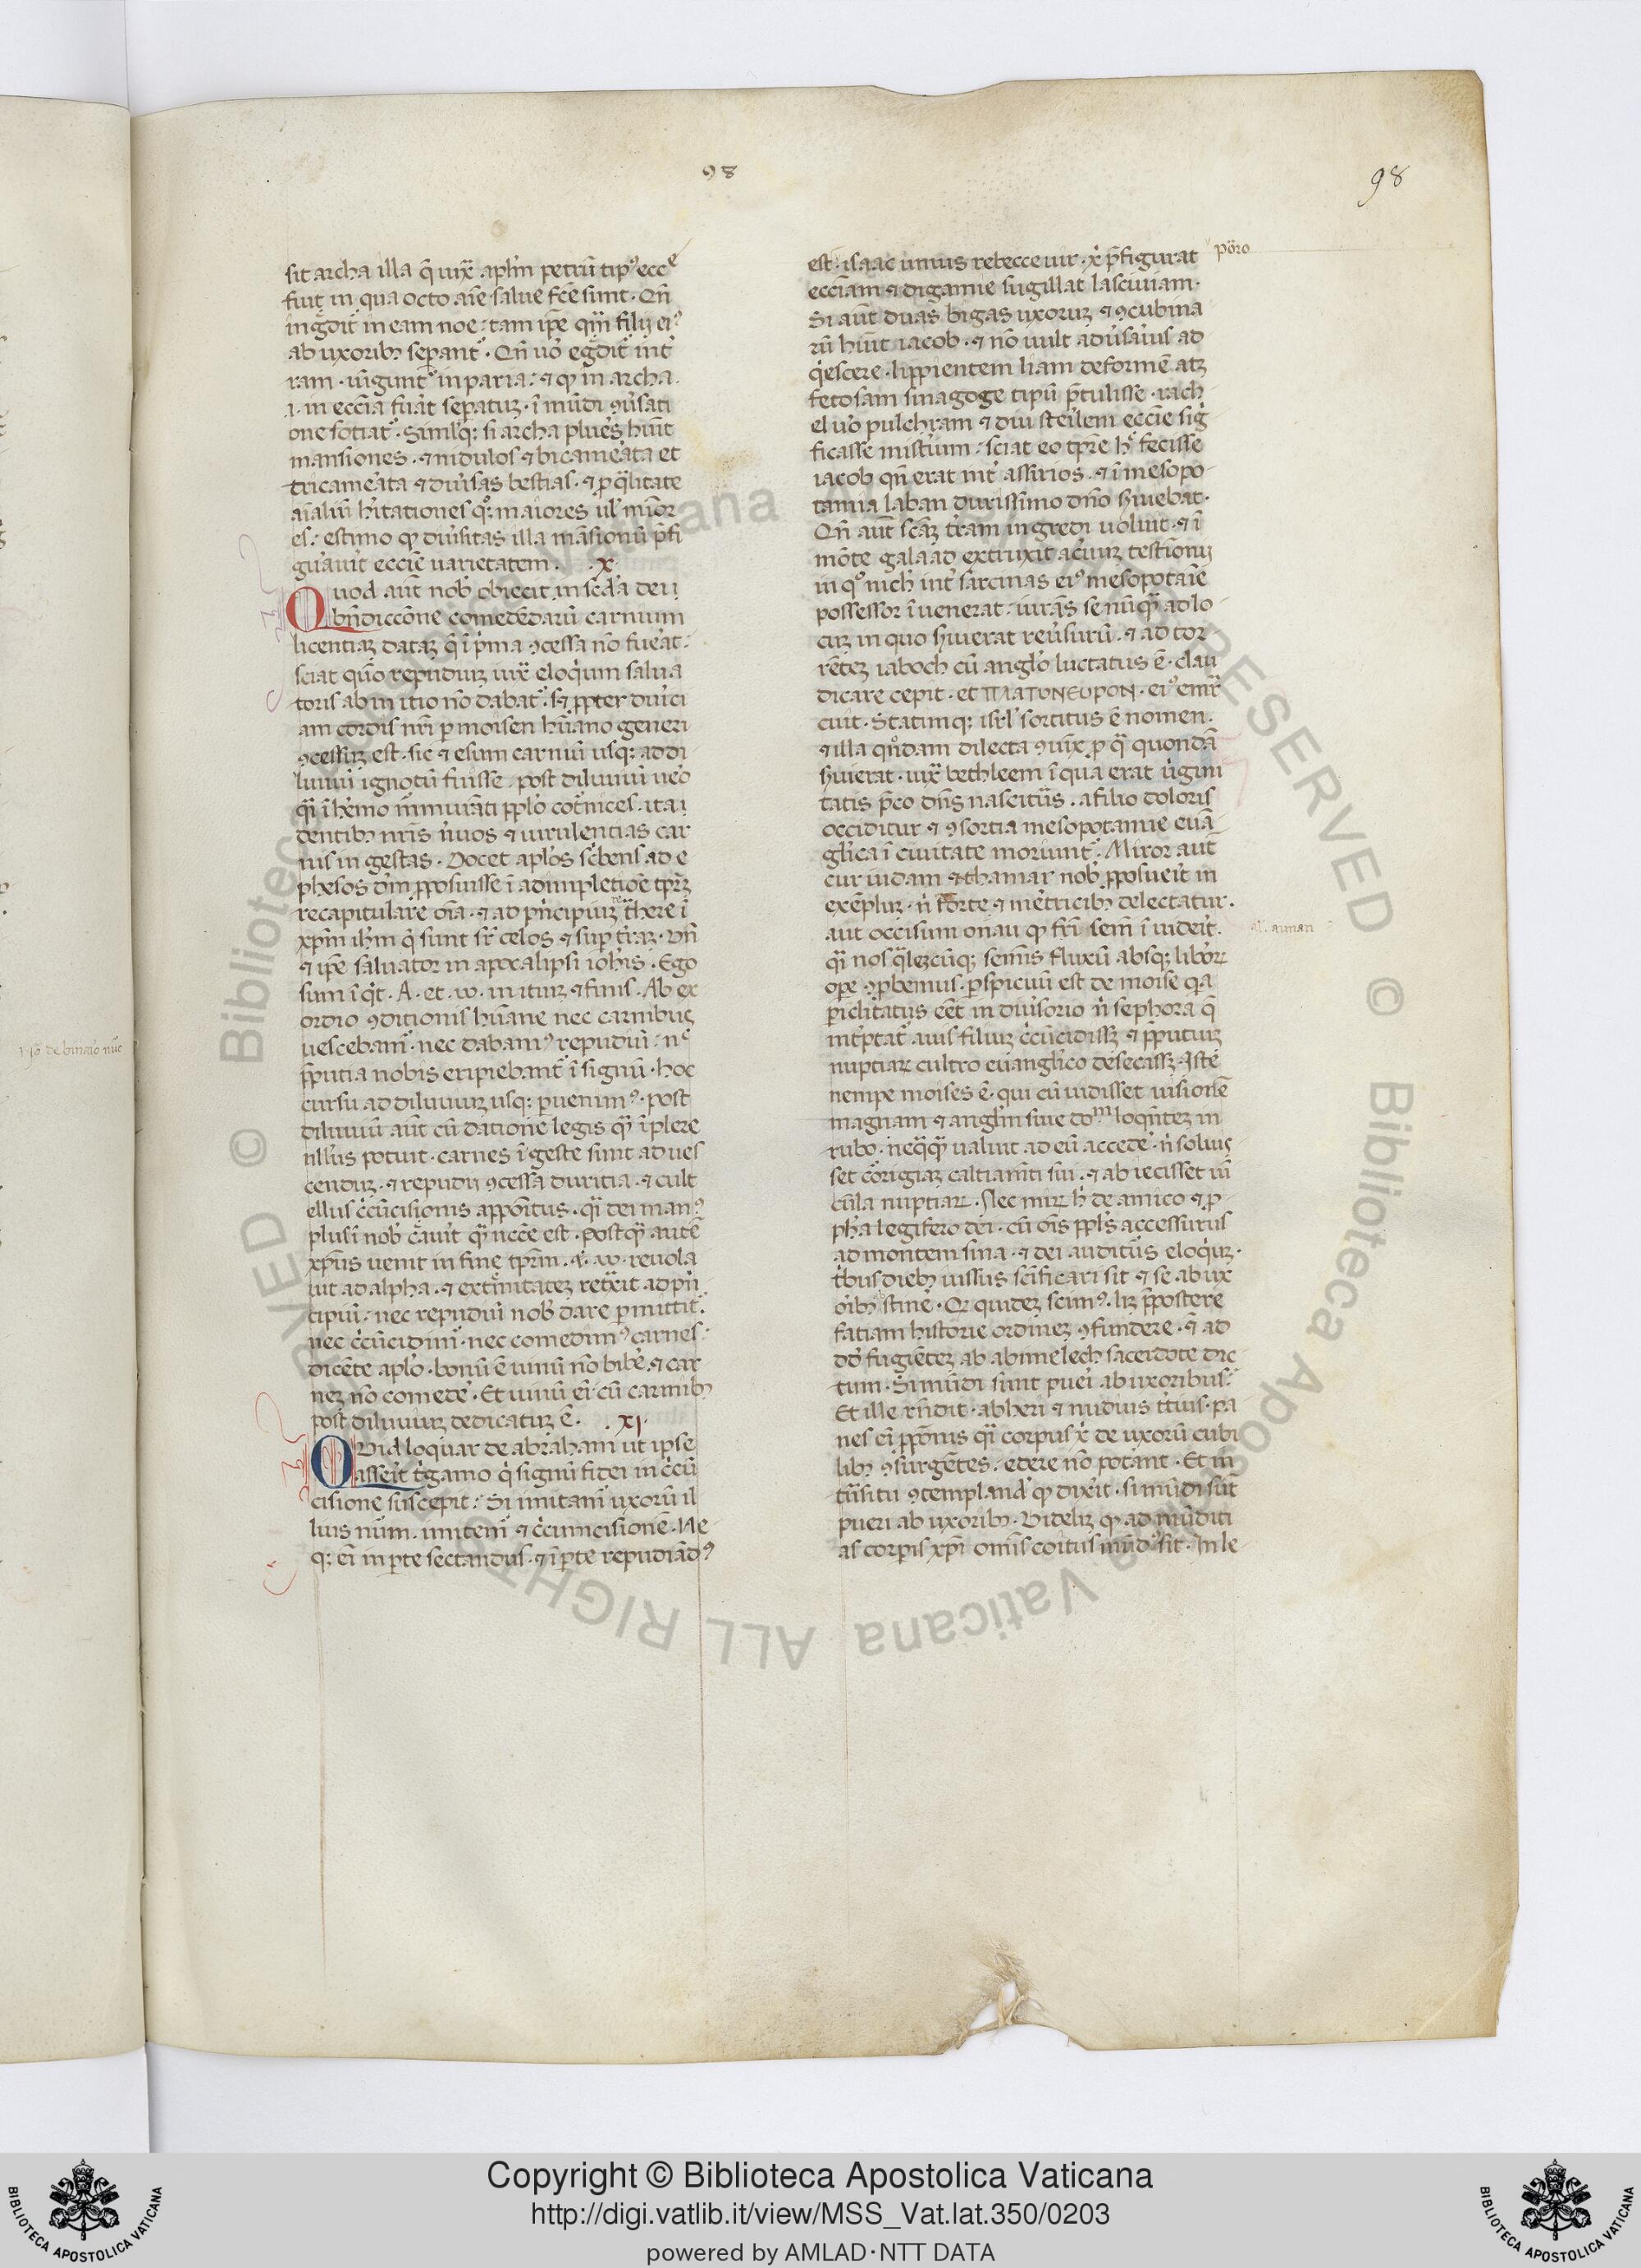 98
98
sit archa illa q̃ iuxͣ apl̃m petrũ tip᷒ ecc̃e
fuit in qua octo aĩe salue fc̃e sunt · Qñ
ingͦditͬ in eam noe : tam ip̃e qͣm filij ei᷒
ab uxorib᷒ sepantͬ · Qñ uͦo egͦditͬ int̾
ram · iũguntͬ in paria : ⁊ qꝺ in archa
.i. in eccĩa fuãt sepatuꝫ · ĩ mũdi ꝯũsati
one sotiatͬ · Simlqꝫ si archa plues hũit
mansiones · ⁊ nidulos ⁊ bicameãta et
tricameãta ⁊ diũsas bestias · ⁊ ꝓ qͣlitate
aĩaliũ hĩtationes qͦꝫ maiores ul̾ miõr
es : estimo qꝺ diũsitas illa mãsionũ p̃fi
guãuit eccĩe uarietatem · .x.
Quod aũt nob̾ obiecit in sc̃da dei
bñdiccõne comedẽdarũ carnium
licentiaꝫ dataꝫ q̃ ĩ pͥma ꝯcessa nõ fueãt :
sciat quõ repudiuꝫ iuxͣ eloqͥum salua
toris ab initio nõ dabatͬ · sꝫ ꝓpter duͥci
am cordis nr̃i ꝑ moisen hũano generi
ꝯcessuꝫ est · sic ⁊ esum carniũ usqꝫ ad di
luuiũ ignotũ fuisse · post diluuiũ ueͦo
qͣi ĩ hẽmo murmurãti ppl̾o cotͬnices · ita i
dentib᷒ nr̃is nͥuos ⁊ uirulentias car
nis ingestas · Docet apl̃us sc̾bens ad e
phesos dm̃ ꝓposuisse ĩ adimpletiõe tp̃rꝫ
recapitulare oĩa · ⁊ ad pͥncipiuꝫ tͣhere ĩ
xp̃m ihm̃ q̾ sunt sr̃ celos ⁊ sup t̾raꝫ · Uñ
⁊ ip̃e saluator in apocalipsi ioh̃is · Ego
sum ĩqͥt · A · et · ω · initiuꝫ ⁊ finis · Ab ex
ordio ꝯditionis hũane nec carnibus
uescebamͬ · nec dabam᷒ repudiũ : nͨ
p̃putia nobis eripiebantͬ ĩ signũ · hoc
cursu ad diluuiuꝫ usqꝫ ꝑuenim᷒ · post
diluuiũ aũt cũ datione legis qͣm ĩplere
nll̾us potuit · carnes ĩgeste sunt ad ues
cenduꝫ · ⁊ repudii ꝯcessa duritia · ⁊ cult
ellus cͥcũcisionis appoñitus · qͣi dei man᷒
plus ĩ nob̾ cͣauit qͣm ncc̃e est · postqͣm autẽ
xp̃us uenit in fine tp̃rm · ⁊ · ω · reuola
uit ad alpha · ⁊ extͬmitateꝫ retͣxit ad pͥn
cipiũ : nec repudiũ nob̾ dare ꝑmittitͬ ·
nec cͥcũcidimͬ · nec comedim᷒ carnes :
dicẽte apl̃o · bonũ ẽ uinũ nõ bibẽ · ⁊ car
neꝫ nõ comedẽ · Et uinũ eĩ cũ carnib᷒
post diluuiuꝫ dedicatuꝫ ẽ · .xi.
Quid loquar de abraham ut ipse
asserit tͥgamo q̾ signũ fidei in cͥcũ
cisione suscepit : Si imitamͬ uxorũ il
lius nũm · imitemͬ ⁊ cͥcumcisionẽ · Ne
qꝫ eĩ in ꝑte sectandus · ⁊ ĩ ꝑte repudiãd᷒
est · isaac unius rebecce uir · xͥ p̃figurat
eccĩam ⁊ digamie sugillat lasciuiam ·
Si aũt duas bigas uxoruꝫ ⁊ ꝯcubina
rũ hũit iacob · ⁊ nõ uult aduͥsaͥius ad
qͥescere · lippientem liam deformẽ atꝫ
fetosam sinagoge tipũ p̃tulisse · rach
el uͦo pulchram ⁊ diu steͥlem eccĩe sig̾
ficasse mistͥium : sciat eo tp̃re h̾ fecisse
iacob qñ erat int̾ assirios · ⁊ ĩ mesopo
tamia laban durissimo dñio ẜuiebat ·
Qñ aũt sc̃aꝫ t̾ram ingredi uoluit · ⁊ ĩ
mõte galaad extruxit aceͥuuꝫ testimonij
in qͦ nich̾ int̾ sarcinas ei᷒ mesopotaĩe
possessor ĩuenerat : iurãs se nũqͣm ad lo
cuꝫ in quo ẜuierat reũsurũ · ⁊ ad tor
rẽteꝫ iaboch cũ angl̾o luctatus ẽ · clau
dicare cepit · et ΠΛΑΤΟΝΕΥΡΟΝ · ei᷒ emr̃
cuit · Statimqꝫ isr̃l̾ sortitus ẽ nomen ·
⁊ illa qñdam dilecta ꝯiũx · ꝓ qͣ quondã
ẜuierat · iuxͣ bethleem ĩ qua erat uͥgini
tatis p̃co dñs nascitͧus · a filio doloris
occiditur ⁊ ꝯsortia mesopotamie euã
gl̾ica ĩ ciuitate moriuntͬ · Miror aũt
cur iudam ⁊ thamar nob̾ ꝓposueͥit in
exẽpluꝫ · nͥ forte ⁊ meͥtricib᷒ delectatur ·
aut occisum onan qꝺ fr̃i semͥ ĩuideͥit ·
qͣi nos qͣlezcũqꝫ semĩs fluxũ absqꝫ liboꝝ
oꝑe ꝯꝓbemus · ꝑspicuũ est de moise qꝛ
ꝑiclitatus ẽẽt in diũsorio nͥ sephora q̃
intͥp̃tatͬ auis filiuꝫ cͥcũcidissꝫ ⁊ p̃putiuꝫ
nuptiaꝝ cultro euãgl̾ico desecassꝫ · Iste
nempe moises ẽ · qui cũ uidisset uisionẽ
magnam ⁊ angl̃m siue doᵐ loqñteꝫ in
rubo · neqͣqͣm ualuit ad eũ accedẽ · nͥ soluis
set corrigiaꝫ caltiamti sui · ⁊ abiecisset uĩ
cũla nuptiaꝝ · Nec miꝝ h̾ de amico ⁊ ꝓ
ph̾a legifero dei · cũ oĩs ppl̾s accessurus
ad montem sina · ⁊ dei auditͧus eloqͥuꝫ ·
tͥbus dieb᷒ iussus sc̃ificari sit ⁊ se ab ux
oͥib᷒ ꝯtinẽ · Qꝛ quideꝫ scim᷒ · lꝫ p̃postere
fatiam historie ordineꝫ ꝯfundere · ⁊ ad
dd̾ fugiẽteꝫ ab abimelech sacerdote dic
tum · Si mũdi sunt pueͥi ab uxoribus :
Et ille rñdit · ab heri ⁊ nudius tͥtius · pa
nes eĩ ꝓpõĩus qͣi corpus xͥ de uxorũ cubi
lib᷒ ꝯsurgẽtes : edere nõ poterãt · Et in
tͣnsitu ꝯtempland̾ qꝺ dixͥit · si mũdi sũt
pueri ab uxorib᷒ · Videlꝫ qꝺ ad mũditi
as corpis xp̃i omĩs coitus imũd᷒ sit · In le